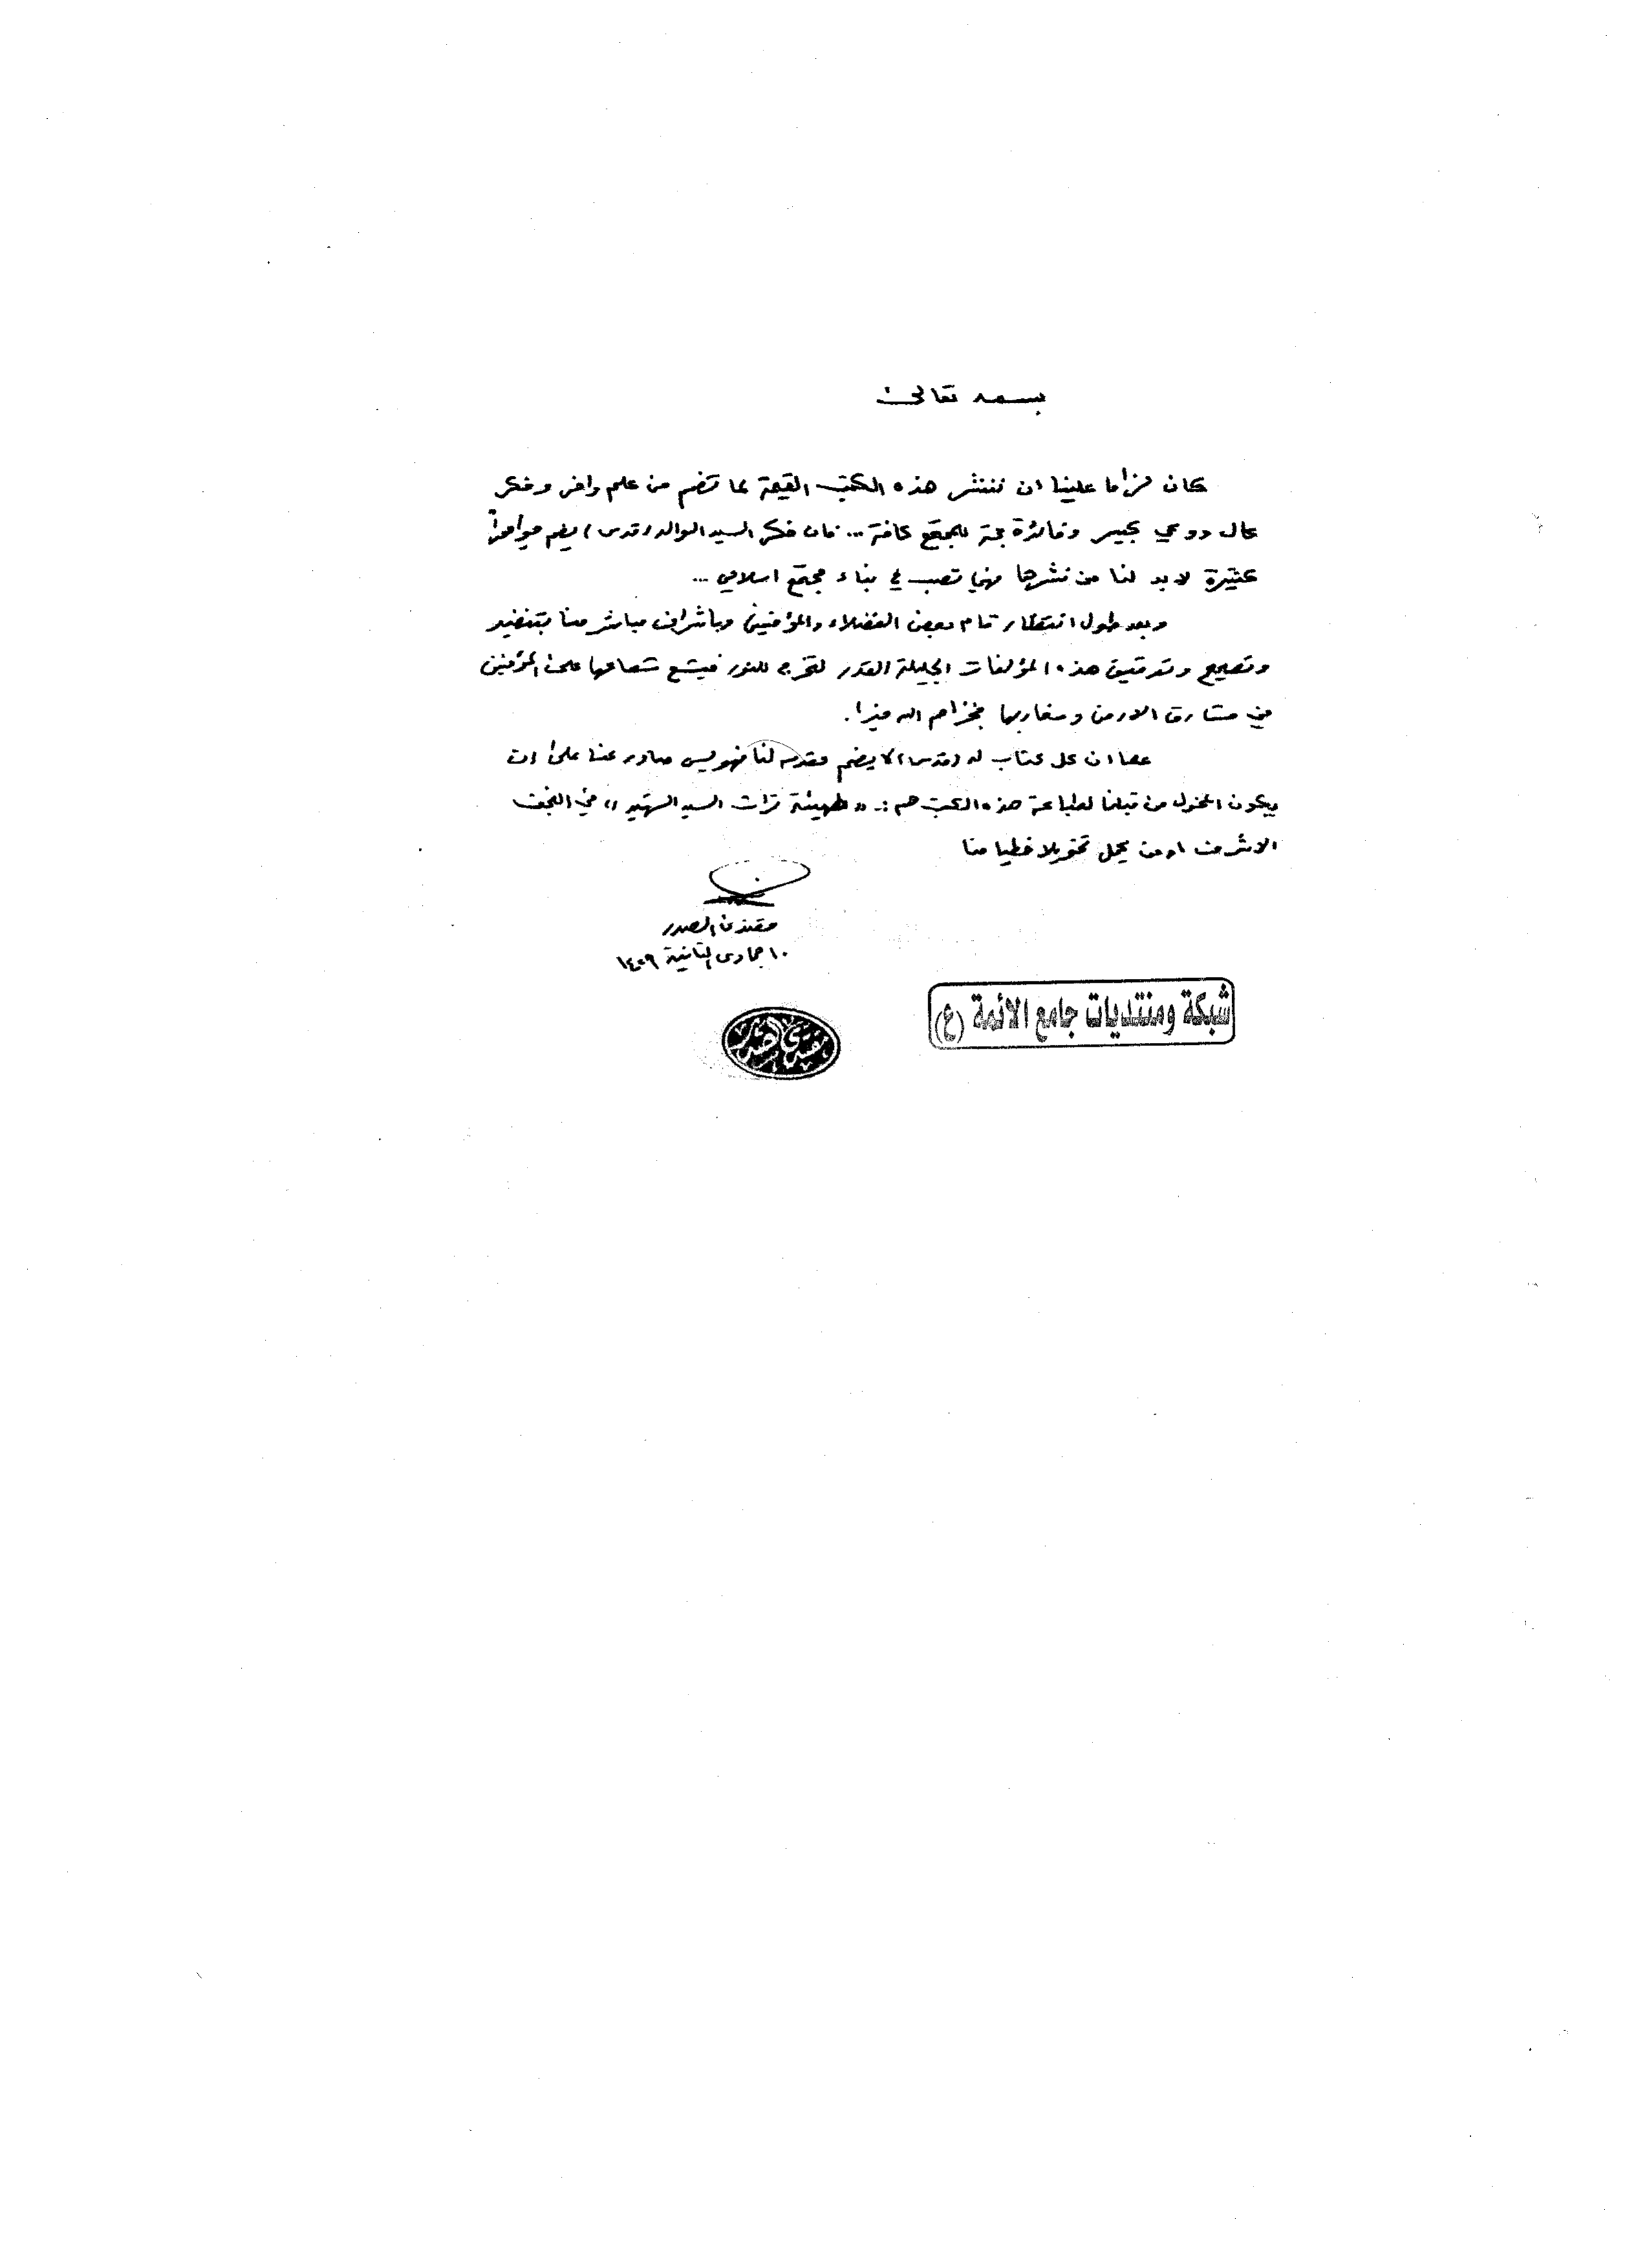 بسمه تعالى
كان لزاما علينا ان ننشر هذه الكتب القيمة لما تضم من علم وافر وفكر
عال ووعي كبير وفائدة جمة للمجتمع كافة ... فان فكر السيد الوالد (قدس) يضم جواهراً
كثيرة لا بد لنا من نشرها فهي تصب في بناء مجتمع اسلامي ...
وبعد طول انتظار قام بعض الفضلاء والمؤمنين وباشراف مباشر منا بتنضيد
وتصحيح وتدقيق هذه المؤلفات الجليلة القدر لتخرج للنور فيشع شعاعها على المؤمنين
في مشارق الارض ومغاربها فجزاهم الله خيرا.
علما ان كل كتاب له (قدس) لا يضم مقدمه لنا فهو ليس صادر عنا على ان
يكون المخول من قبلنا لطباعة هذه الكتب هم :- «هيئة تراث السيد الشهيد» في النجف
الاشرف او من يحمل تخويلا خطيا منا
مقتدى الصدر
١٠ جمادى الثانية ١٤٢٩
شبكة ومنتديات جامع الائمة (ع)
مقتدى الصدر